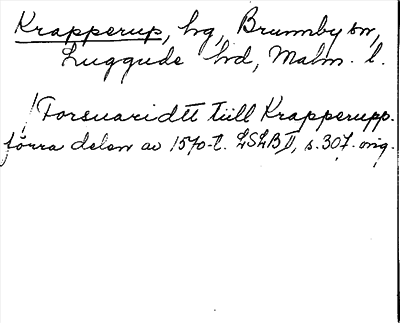 Krapperup, hg, Brunnby sn,
Luggude hd, Malm. l.
/Forsuaridtt tiill Krapperupp.
förra delen av 1570-t. LSLB II, s. 307. orig.